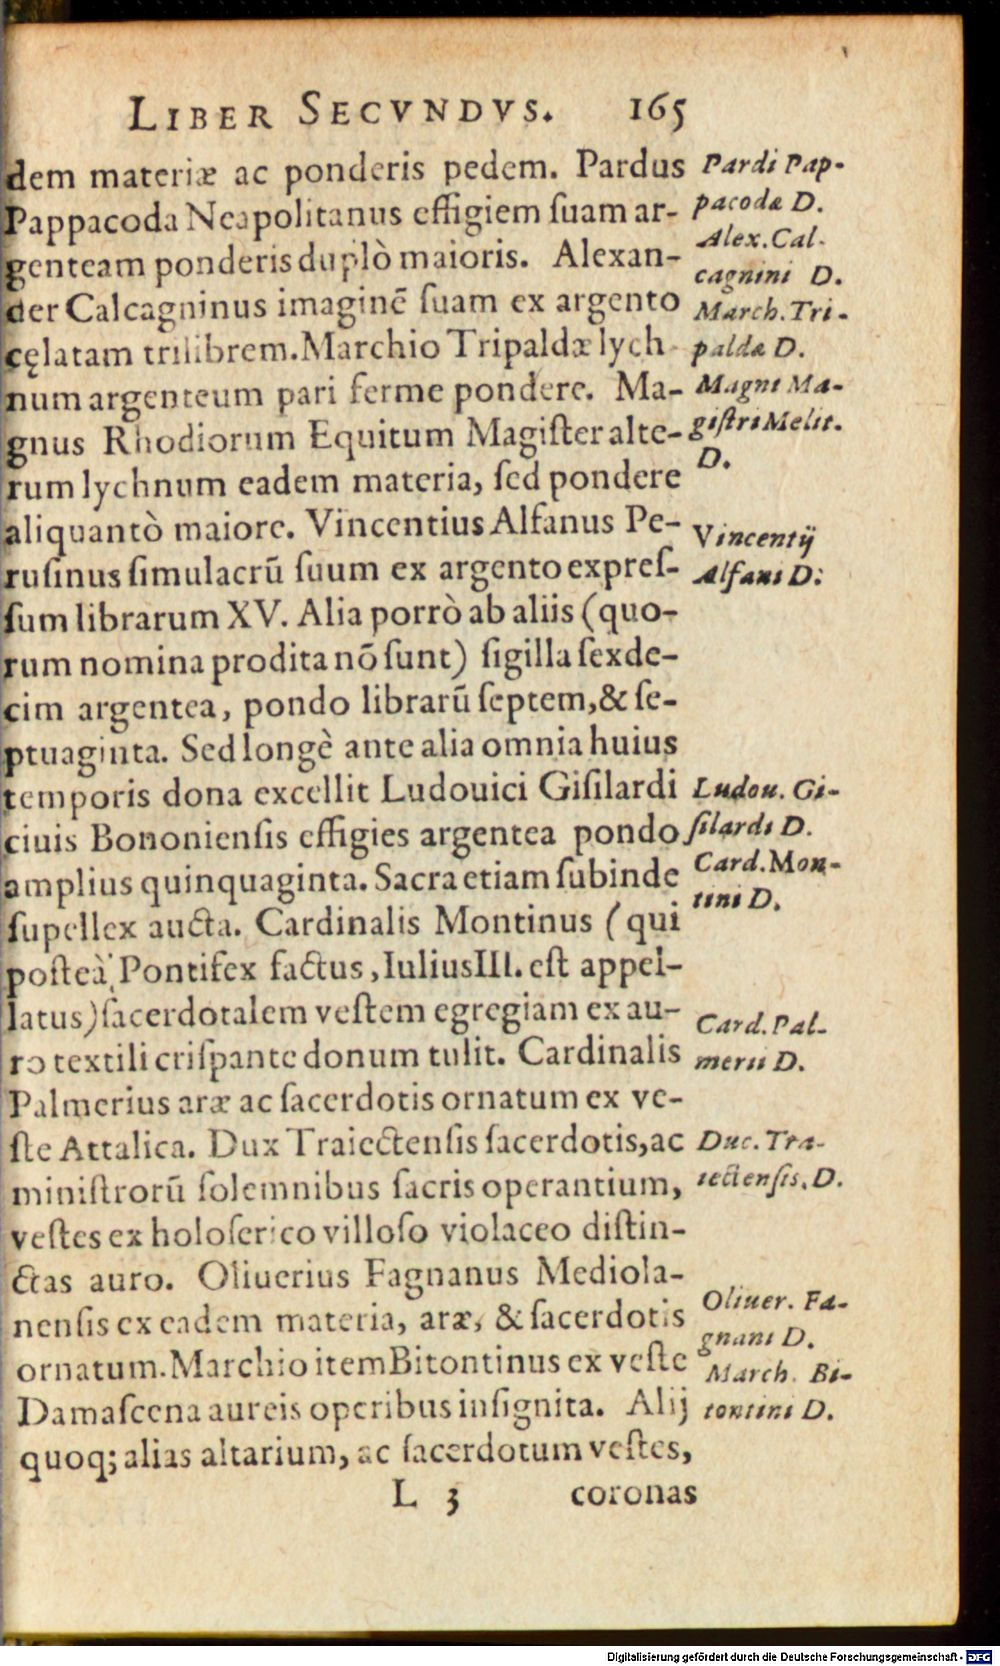 LIBER SECVNDVS. 165
dem materiæ ac ponderis pedem. Pardus
Pappacoda Neapolitanus effigiem ſuam ar-
genteam ponderis duplò maioris. Alexan-
der Calcagninus imaginē ſuam ex argento
cęlatam trilibrem. Marchio Tripaldæ lych
num argenteum pari ferme pondere. Ma-
gnus Rhodiorum Equitum Magiſter alte-
rum lychnum eadem materia, ſed pondere
aliquantò maiore. Vincentius Alfanus Pe-
ruſinus ſimulacrū ſuum ex argento expreſ-
ſum librarum XV. Alia porrò ab aliis (quo-
rum nomina prodita nō ſunt) ſigilla ſexde-
cim argentea, pondo librarū ſeptem, & ſe-
ptuaginta. Sed longè ante alia omnia huius
temporis dona excellit Ludouici Giſilardi
ciuis Bononienſis effigies argentea pondo
amplius quinquaginta. Sacra etiam ſubinde
ſupellex aucta. Cardinalis Montinus (qui
poſteà Pontifex factus, Iulius III. eſt appel-
latus) ſacerdotalem veſtem egregiam ex au-
ro textili criſpante donum tulit. Cardinalis
Palmerius aræ ac ſacerdotis ornatum ex ve-
ſte Attalica. Dux Traiectenſis ſacerdotis, ac
miniſtrorū ſolemnibus ſacris operantium,
veſtes ex holoſerico villoſo violaceo diſtin-
ctas auro. Oliuerius Fagnanus Mediola-
nenſis ex eadem materia, aræ, & ſacerdotis
ornatum. Marchio item Bitontinus ex veſte
Damaſcena aureis operibus inſignita. Alij
quoq; alias altarium, ac ſacerdotum veſtes,
L 3 coronas
Pardi Pap-
pacodæ D.
Alex. Cal-
cagnini D.
March. Tri-
paldæ D.
Magni Ma-
giſtri Melit.
D.
Vincentij
Alfani D.
Ludou. Gi-
ſilardi D.
Card. Mon-
tini D.
Card. Pal-
merii D.
Duc. Tra-
iectenſis. D.
Oliuer. Fa-
gnani D.
March. Bi-
tontini D.
Digitalisierung gefördert durch die Deutsche Forschungsgemeinschaft - DFG